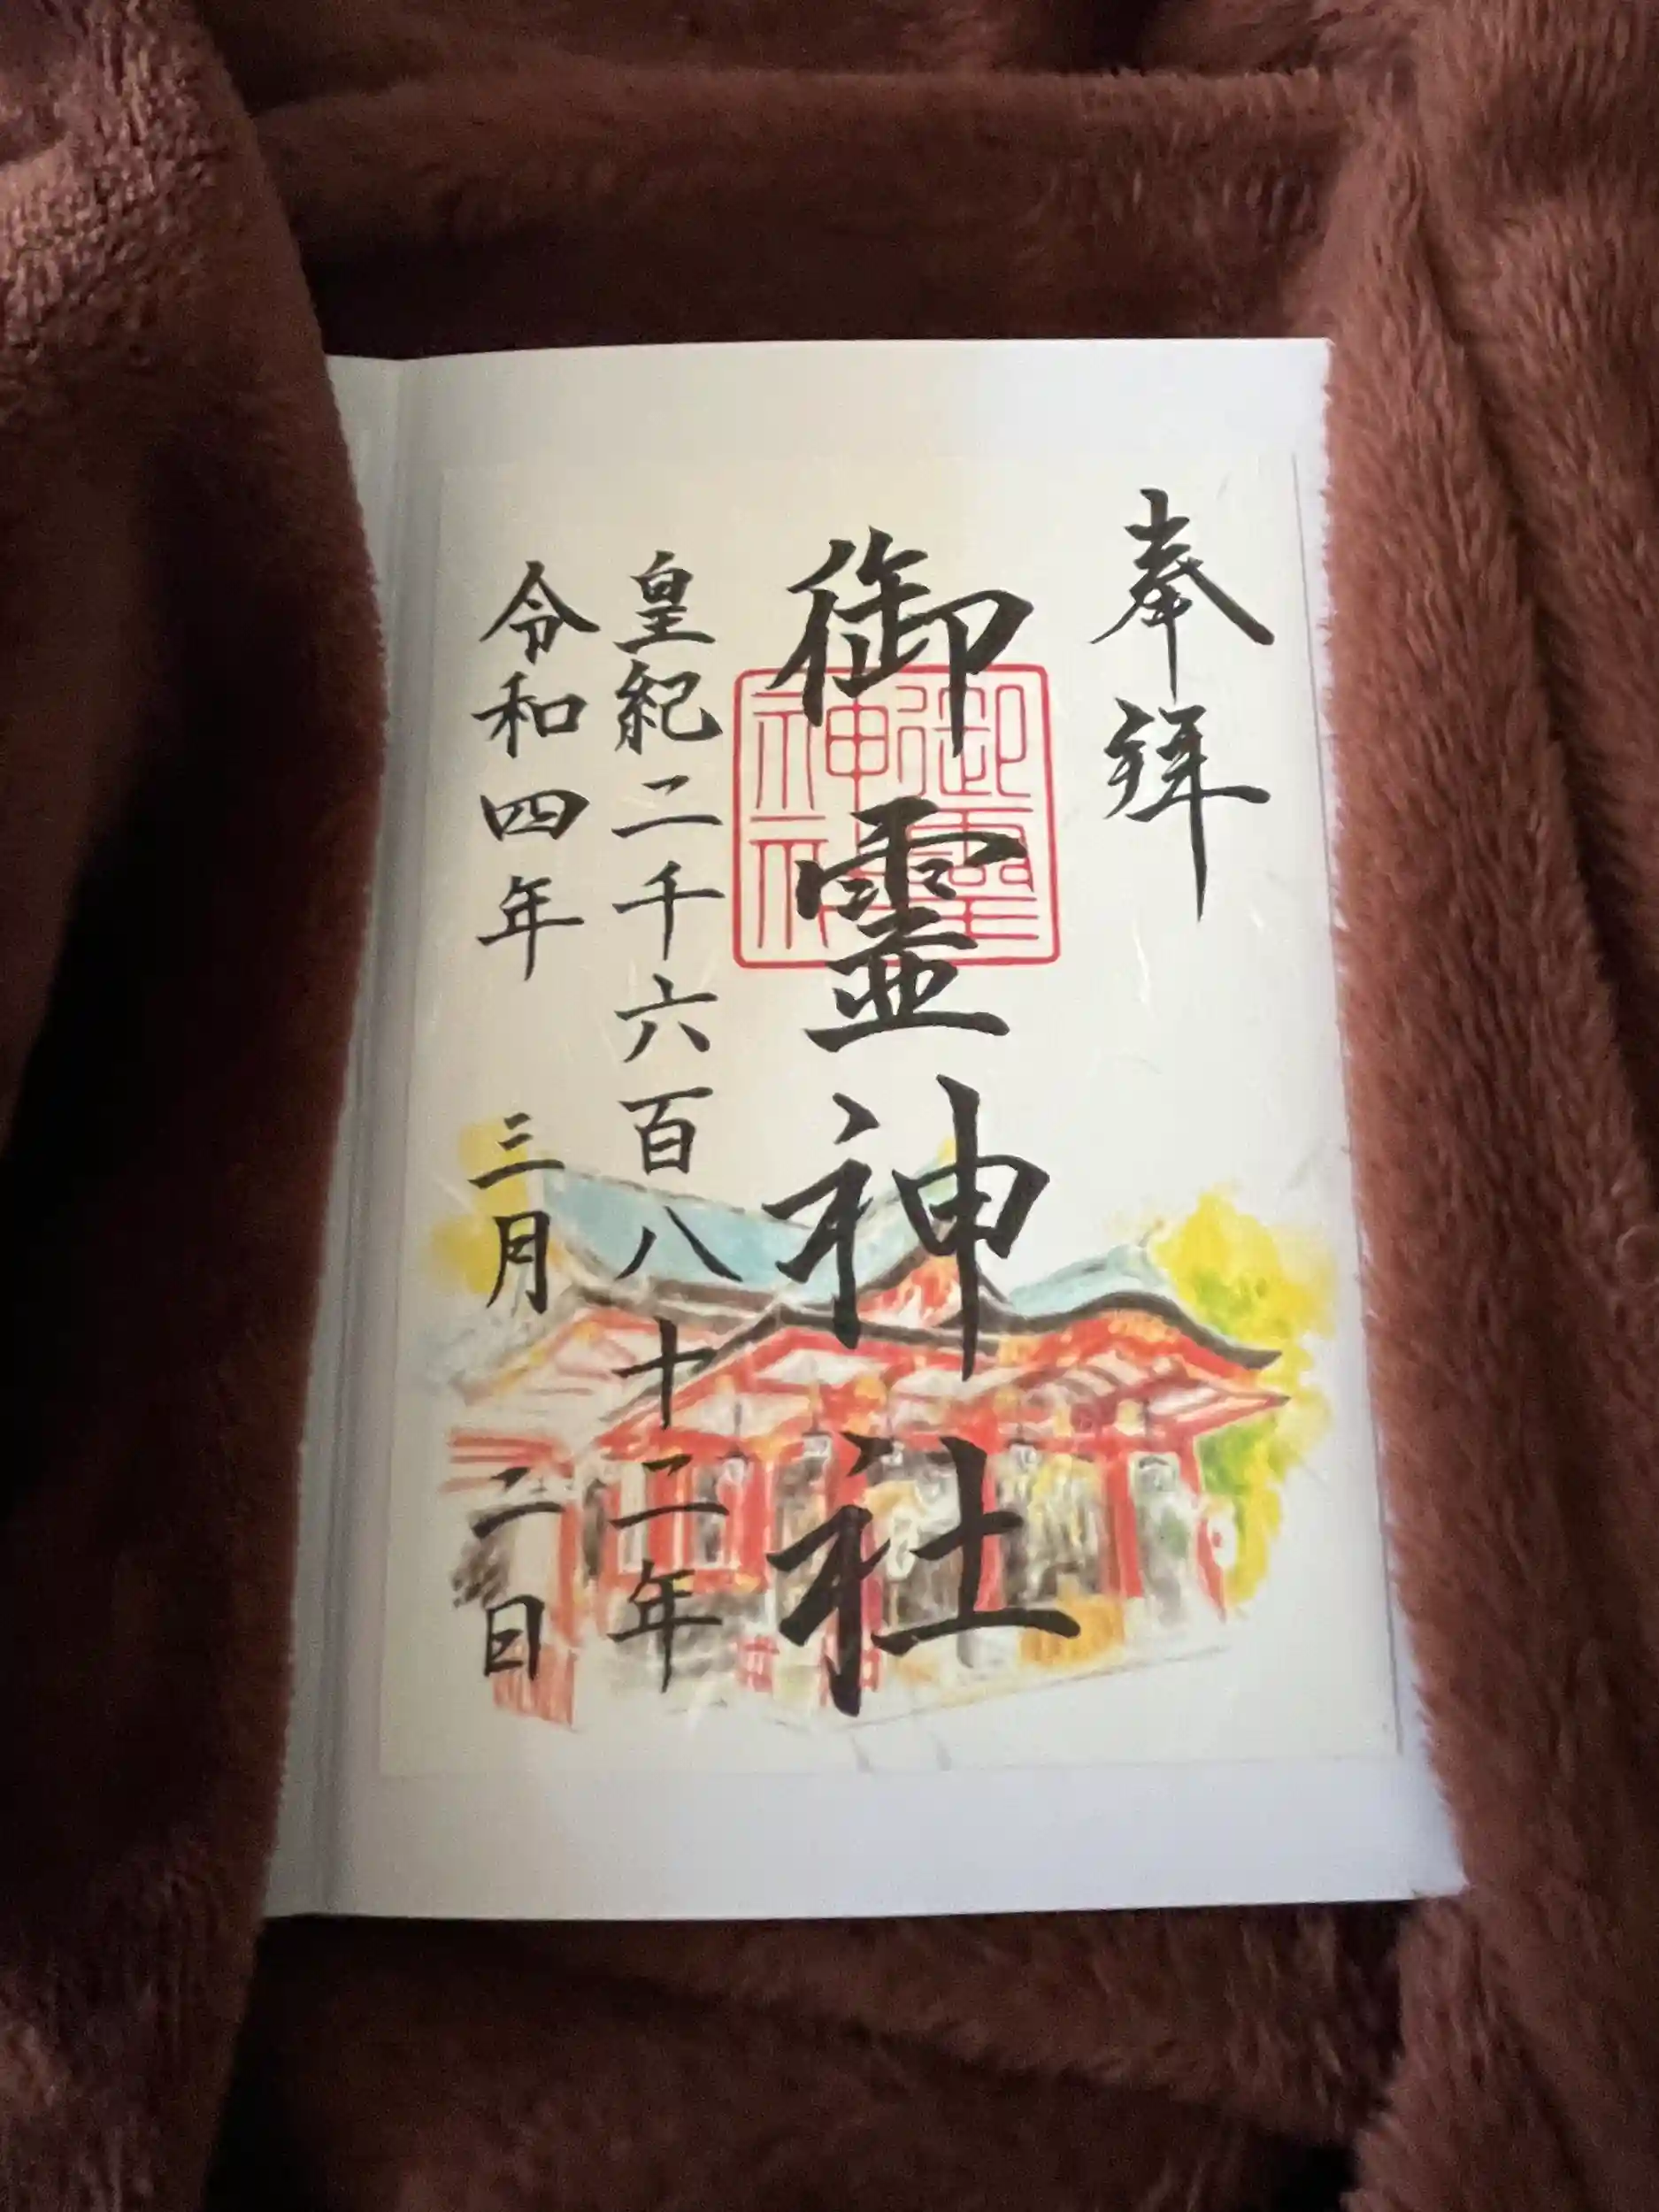 奉拜
御靈神社
御靈神社
皇紀二千六百八十二年
令和四年 三月 二日